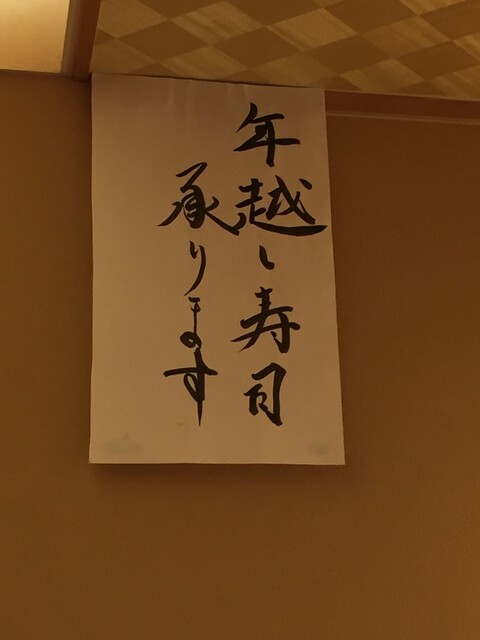 年越し寿司
承ります